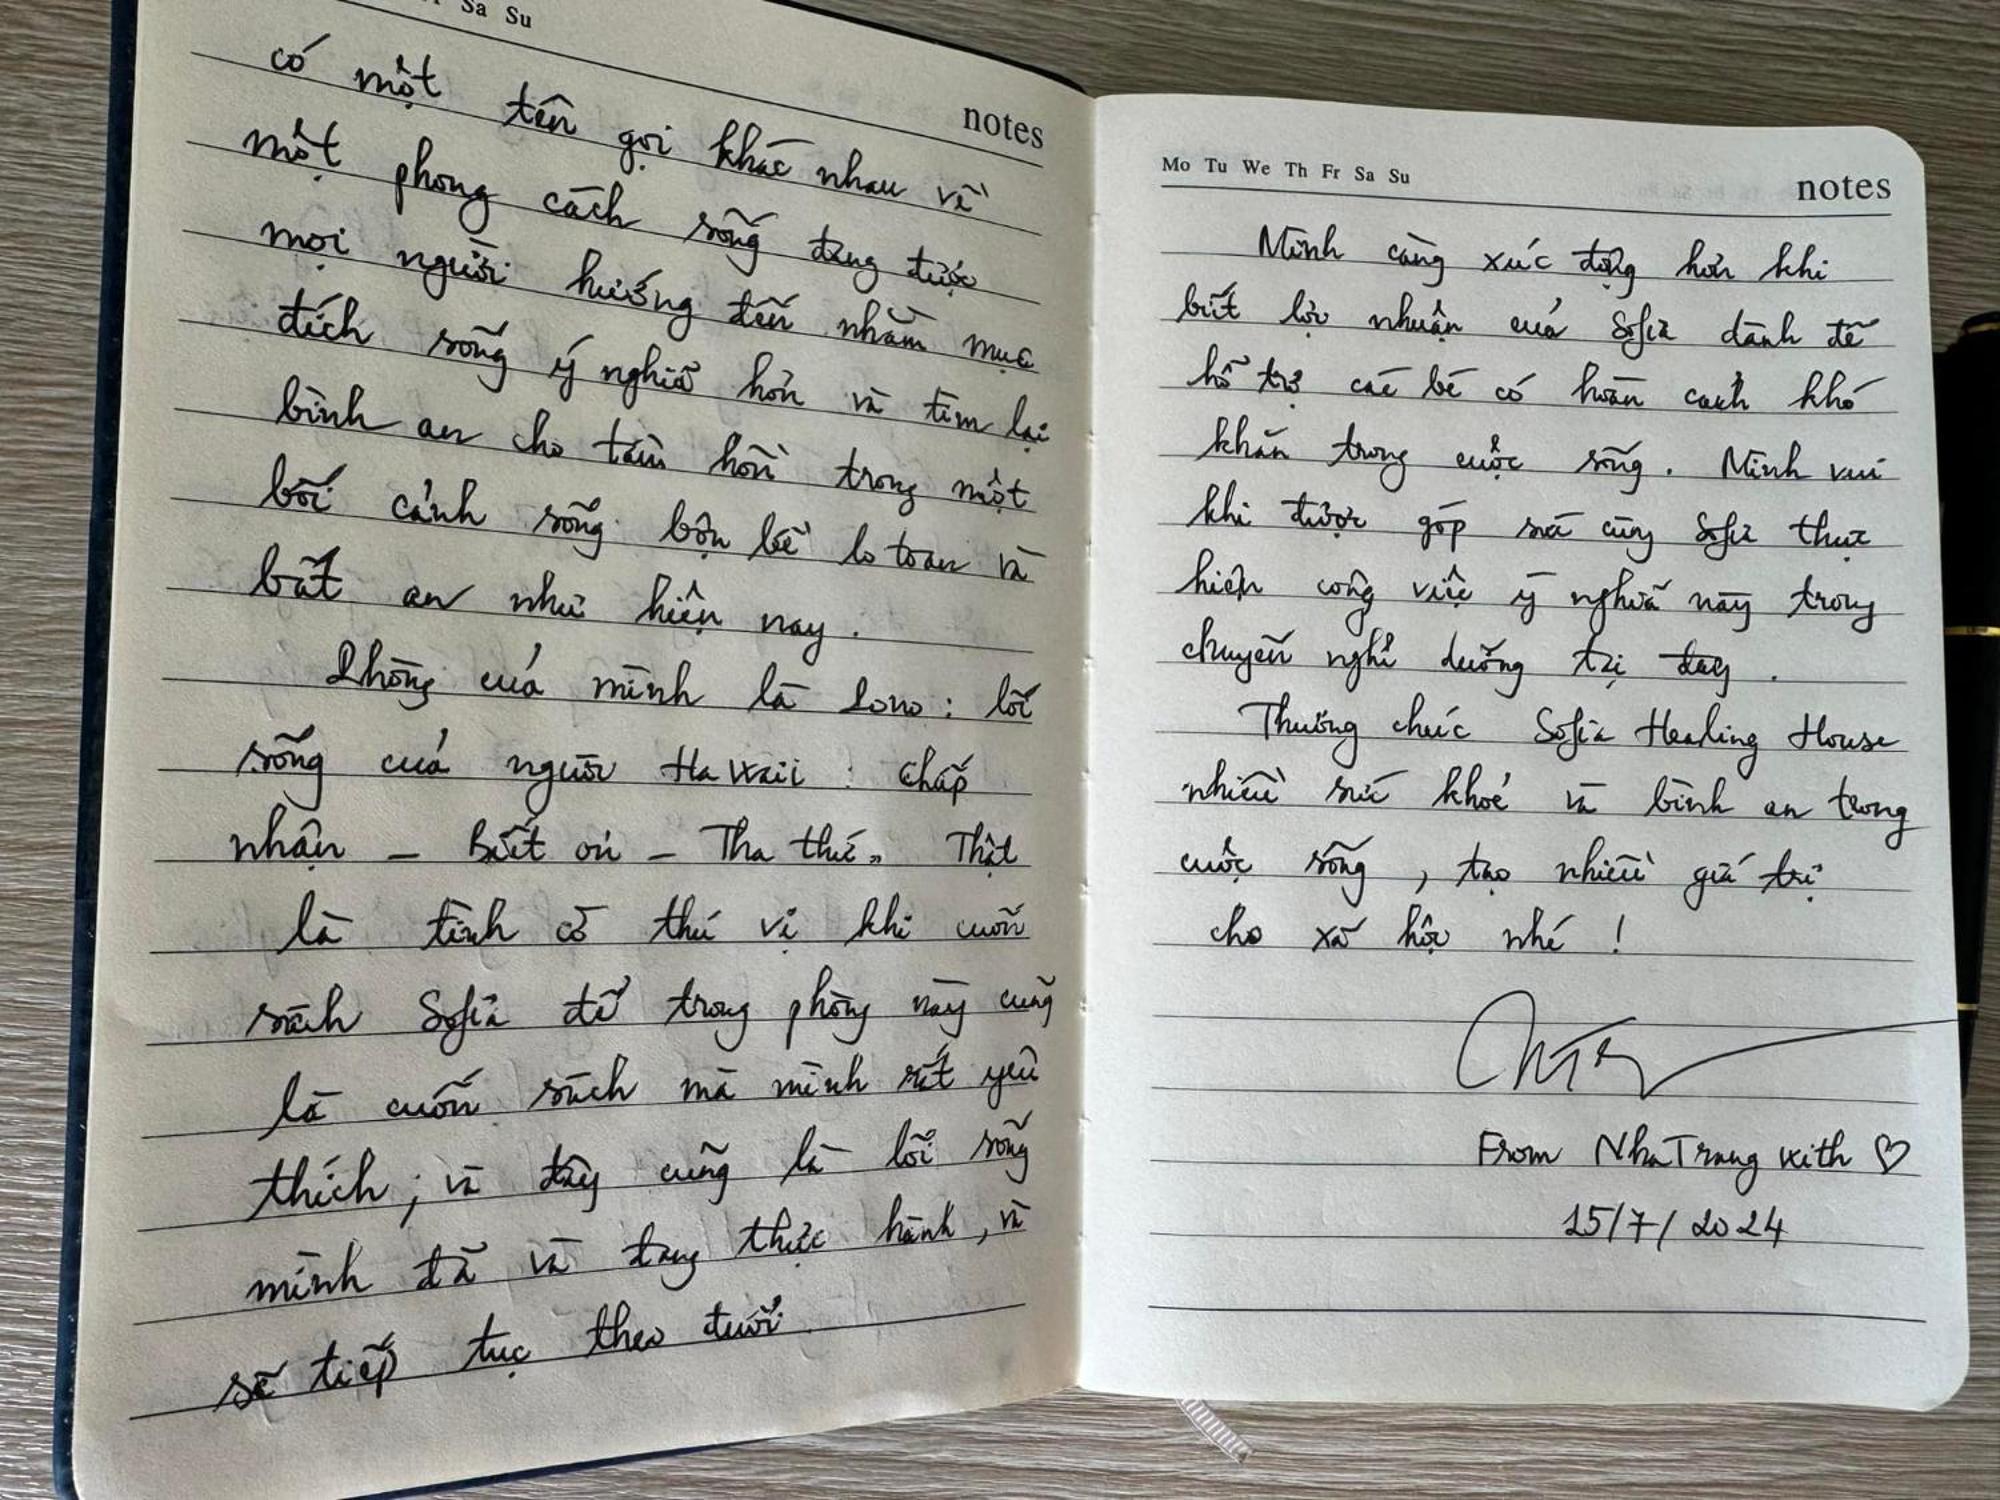 Sa Su
notes
có một tên gọi khác nhau về
một phong cách sống đang được
mọi người hướng đến nhằm mục
đích sống ý nghĩa hơn và tìm lại
bình an cho tâm hồn trong một
bối cảnh sống bộn bề lo toan và
bất an như hiện nay.
Phòng của mình là Lono: lối
sống của người Hawaii: chấp
nhận – Biết ơn – Tha thứ". Thật
là tình cờ thú vị khi cuốn
sách Sofia để trong phòng này cũng
là cuốn sách mà mình rất yêu
thích; và đây cũng là lối sống
mình đã và đang thực hành, và
sẽ tiếp tục theo đuổi.
Mo Tu We Th Fr Sa Su
notes
Mình càng xúc động hơn khi
biết lợi nhuận của Sofia dành để
hỗ trợ các bé có hoàn cảnh khó
khăn trong cuộc sống. Mình vui
khi được góp sức cùng Sofia thực
hiện công việc ý nghĩa này trong
chuyến nghỉ dưỡng tại đây.
Thương chúc Sofia Healing House
nhiều sức khoẻ và bình an trong
cuộc sống, tạo nhiều giá trị
cho xã hội nhé!
From Nha Trang with ♡
15/7/2024